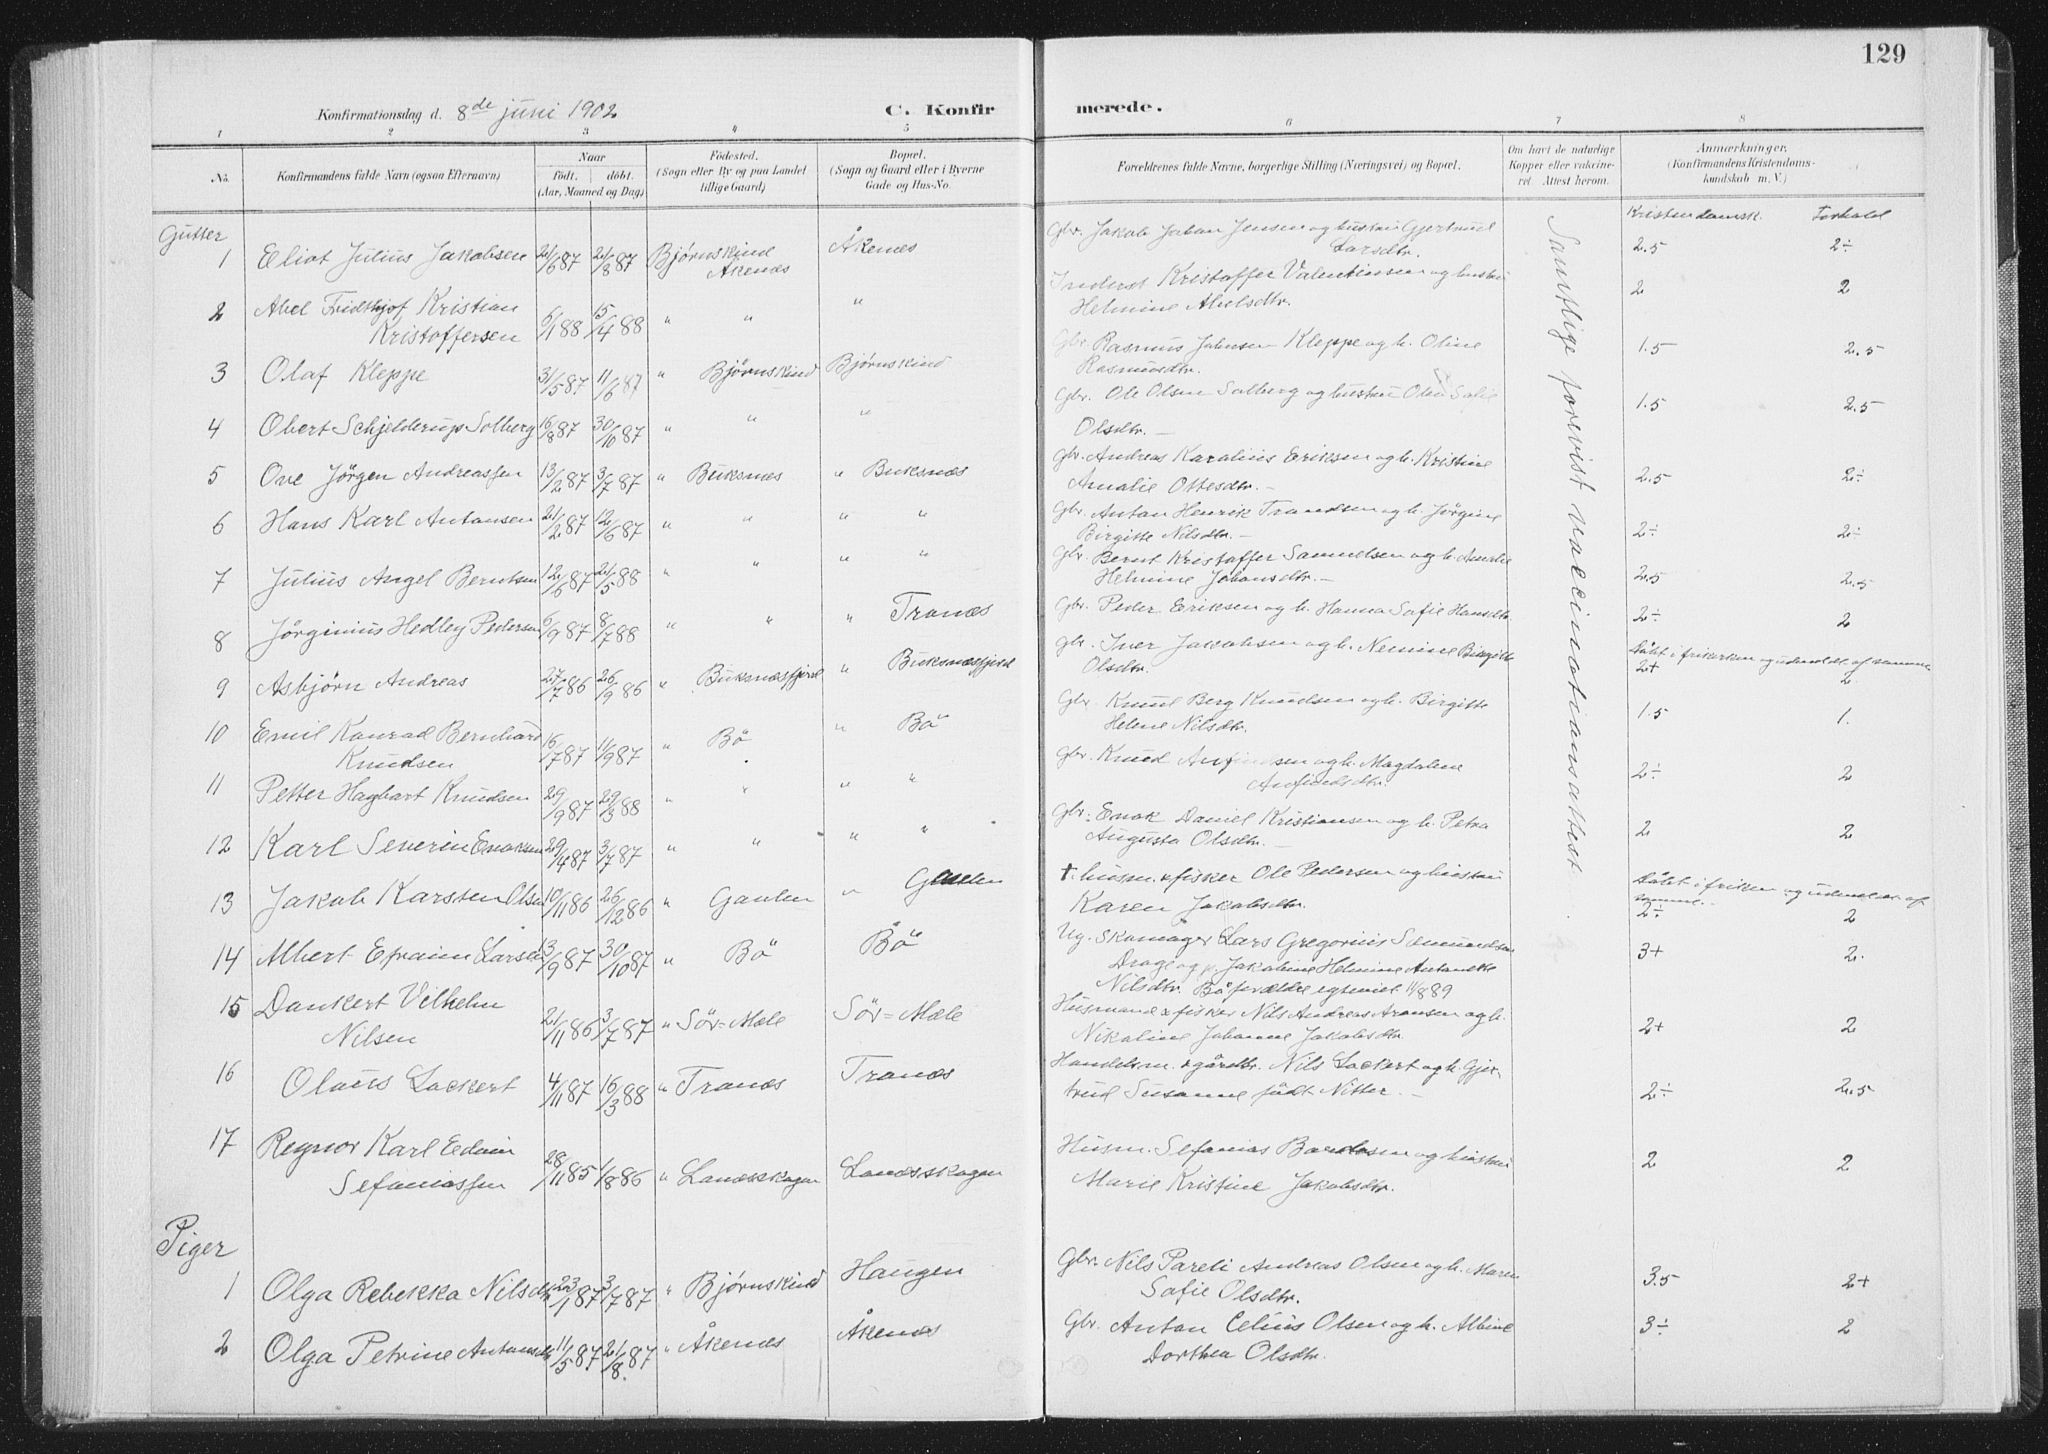 129
Konfirmationsdag d. 8de juni 1902
C. Konfirmerede.
1 2 3 4 5 6 7 8
No. Konfirmandens fulde Navn (ogsaa Efternavn)
Naar født. døbt. (Aar, Maaned og Dag)
Fødested. (Sogn eller By og paa Landet tillige Gaard)
Bopæl. (Sogn og Gaard eller i Byerne Gade og Hus-No.
Forældrenes fulde Navne, borgerlige Stilling (Næringsvei) og Bopæl.
Om havt de naturlige Kopper eller vakcineret. Attest herom.
Anmærkninger. (Konfirmandens Kristendomskundskab m. V.)
Kristendomsk. Forhold
Samtlige forevist vaccinationsattest.
Gutter
1 Eliot Julius Jakobsen 21/6 87 21/8 87 Bjørnskind Åkenes Åkenes Gbr. Jakob Johan Jensen og hustru Gjertrud Larsdtr. 2.5 2÷
2 Abel Fridthjof Kristian Kristoffersen 6/1 88 15/4 88 " " " Inderst Kristoffer Valentinsen og hustru Helmine Abelsdtr. 2 2
3 Olaf Kleppe 31/5 87 11/6 87 " Bjørnskind Bjørnskind Gbr. Rasmus Johnsen Kleppe og h. Oline Rasmusdtr. 1.5 2.5
4 Obert Schjelderup Solberg 16/8 87 30/10 87 " " " Gbr. Ole Olsen Solberg og hustru Olea Sofie Olsdtr. 1.5 2.5
5 Ove Jørgen Andreassen 13/2 87 3/7 87 " Buksnes " Buksnes Gbr. Andreas Karolius Eriksen og h. Kristine Amalie Ottesdtr. 2.5 2÷
6 Hans Karl Antonsen 21/2 87 12/6 87 " " " " Gbr. Anton Henrik Trondsen og h. Jørgine Birgitte Nilsdtr. 2÷ 2÷
7 Julius Angel Berntsen 12/6 87 21/5 88 " " " " Gbr. Bernt Kristoffer Samuelsen og h. Amalie Helmine Johansdtr. 2.5 2.5
8 Jørginius Hedley Pedersen 6/9 87 8/7 88 " " " Tranes Gbr. Peder Eriksen og h. Hanna Sofie Hansdtr. 2÷ 2
9 Asbjørn Andreas 27/7 86 26/9 86 " Buksnesfjord " Buksnesfjord Gbr. Iver Jakobsen og h. Nemine Birgitte Olsdtr. Døbt i frikirken og udmeldt af samme 2+ 2
10 Emil Konrad Bernhard Knudsen 16/7 87 11/9 87 " Bö " Bö Gbr. Knud Berg Knudsen og h. Birgitte Helene Nilsdtr. 1.5 1.
11 Petter Hagbart Knudsen 29/9 87 29/3 88 " " " " Gbr. Knud Anfindsen og h. Magdalene Anfindsdtr. 2÷ 2
12 Karl Severin Enoksen 29/4 87 3/7 87 " " " " Gbr. Enok Daniel Kristiansen og h. Petra Augusta Olsdtr. 2 2
13 Jakob Karsten Olsen 10/11 86 26/12 86 " Gaulen " Gaulen † husm. & fisker Ole Pedersen og hustru Karen Jakobsdtr. Døbt i frikirken og udmeldt af samme. 2÷ 2
14 Albert Efraim Larsen 13/9 87 30/10 87 " Bö Bö Ug. Skomager Lars Gregorius Sæmundsen Drage og p. Jakobine Helmine Antonette Nilsdtr. Bö forældre egteviet 11/8 89 3+ 2.
15 Dankert Vilhelm Nilsen 21/11 86 3/7 87 " Sör=Mele Sör=Mele Husmand & fisker Nils Andreas Aronsen og h. Nikoline Johanne Jakobsdtr. 2+ 2
16 Olaus Lockert 4/11 87 16/3 88 " Tranes Tranes Handelsm. & gårdbr. Nils Lockert og h. Gjertrud Susanne født Nitter. 2÷ 2.5
17 Regnor Karl Edvin Sefaniassen 28/11 85 1/8 86 " Lanesskogen Lanesskogen Husm. Sefanias Bordosen og hustru Marie Kristine Jakobsdtr. 2 2
Piger
1 Olga Rebekka Nilsdtr. 23/1 87 3/7 87 " Bjørnskind Haugen Gbr. Nils Pareli Andreas Olsen og h. Maren Sofie Olsdtr. 3.5 2+
2 Olga Petrine Antonsdtr 11/5 87 21/8 87 " Åkenes Åkenes Gbr. Anton Celius Olsen og h. Albine Dorthea Olsdtr. 3÷ 2